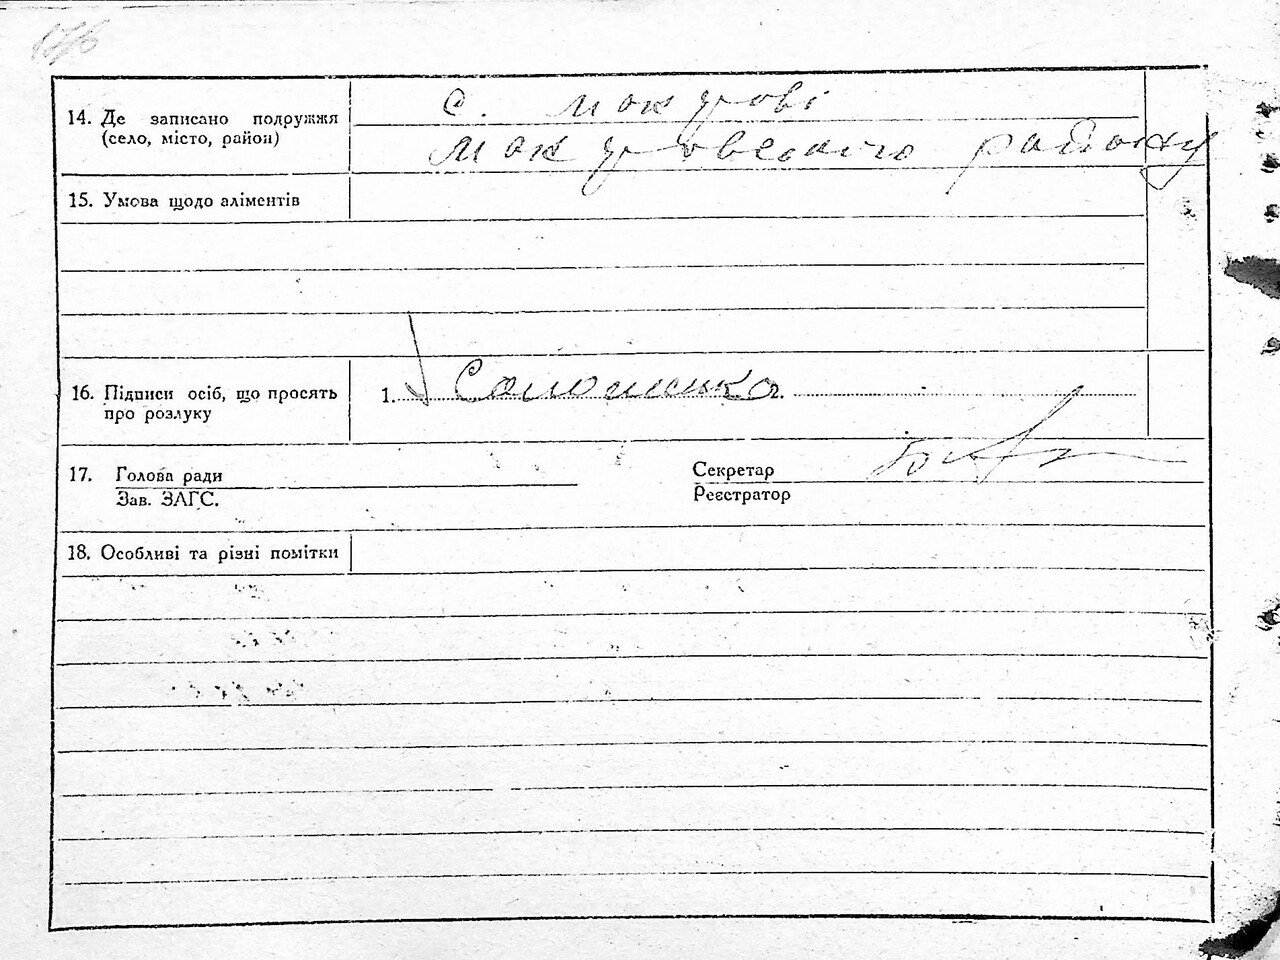 14. Де записано подружжя
(село, місто, район)
с.
району
15. Умова щодо аліментів
16. Підписи осіб, що просять
про розлуку
1.
2.
17. Голова ради
Зав. ЗАГС.
Секретар
Реєстратор
18. Особливі та різні помітки